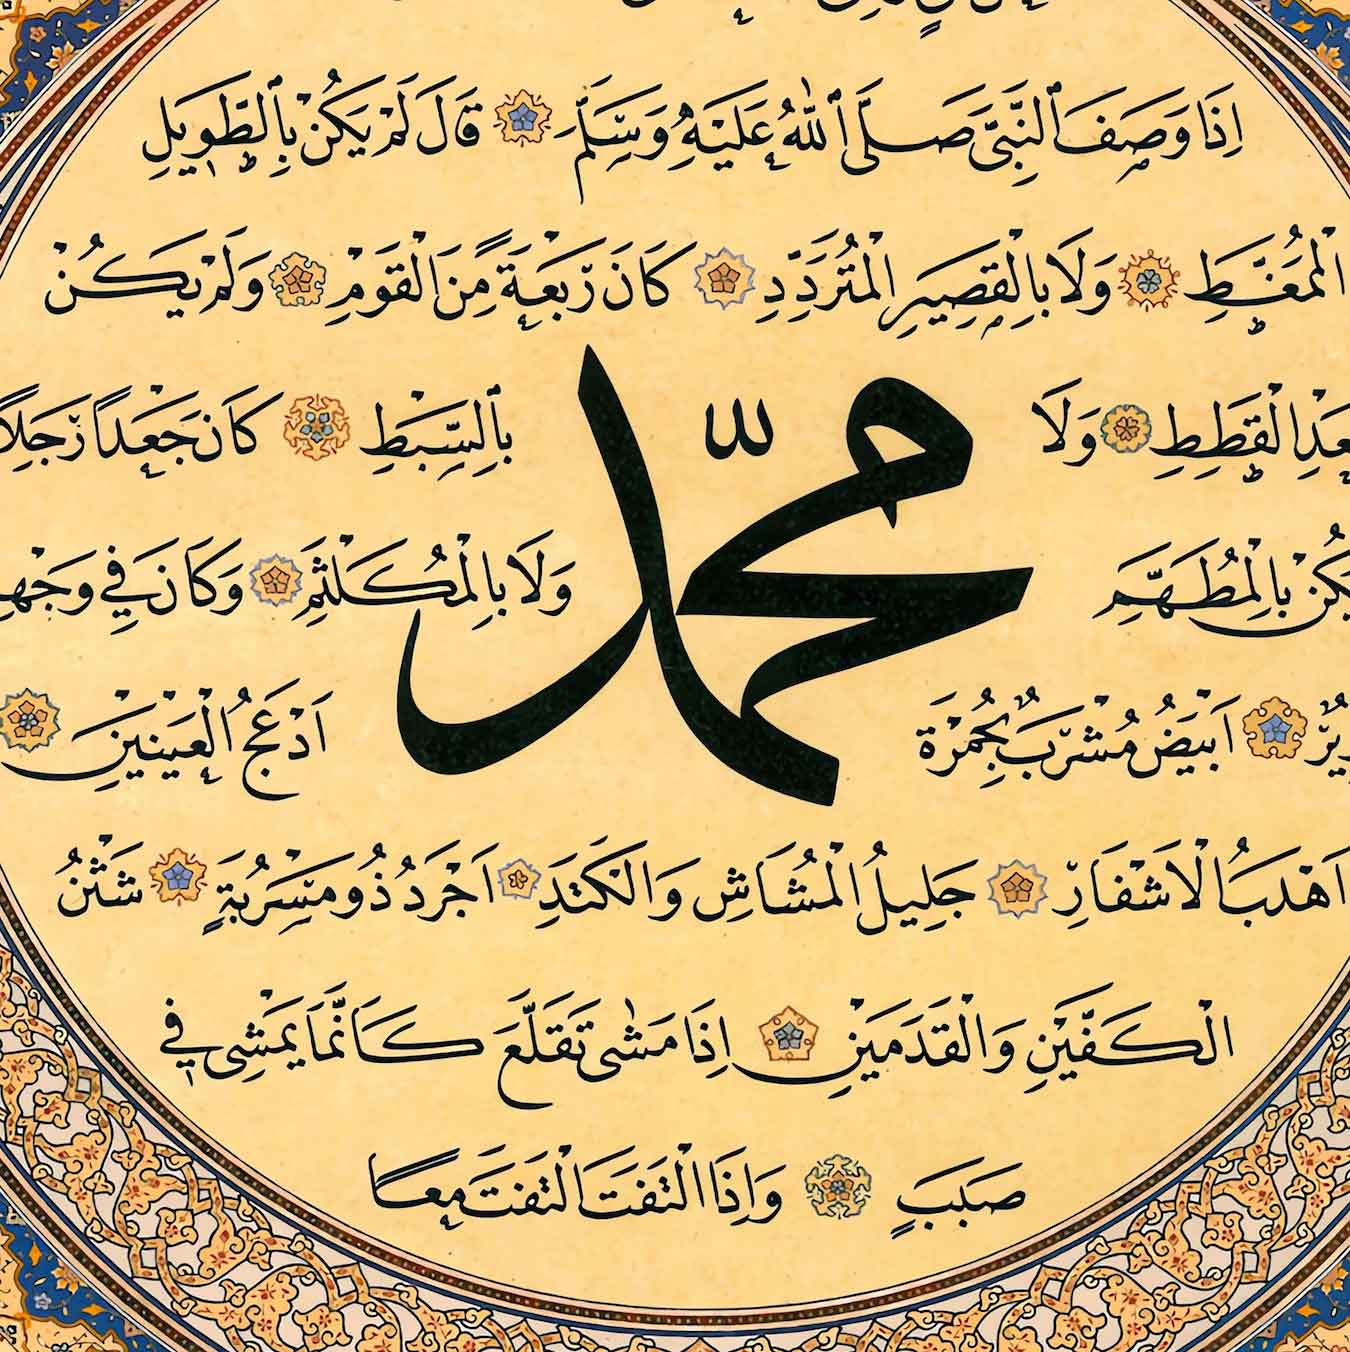 اِذَا وَصَفَ ٱلنَّبِىَّ صَلَّى ٱللهُ عَلَيْهِ وَسَلَّمَ قَالَ لَمْ يَكُنْ بِالطَّوِيلِ
الْمُمَغَّطِ وَلَا بِالْقَصِيرِ الْمُتَرَدِّدِ كَانَ رَبْعَةً مِنَ الْقَوْمِ وَلَمْ يَكُنْ
الْقَطِطِ وَلَا محمد بِالسَّبِطِ كَانَ جَعْدًا رَجِلًا
بِالْمُطَهَّمِ وَلَا بِالْمُكَلْثَمِ وَكَانَ فِي
اَبْيَضُ مُشْرَبٌ بِحُمْرَةٍ اَدْعَجُ الْعَيْنَيْنِ
اَهْدَبُ الْاَشْفَارِ جَلِيلُ الْمُشَاشِ وَالْكَتَدِ اَجْرَدُ ذُو مَسْرُبَةٍ شَثْنُ
الْكَفَّيْنِ وَالْقَدَمَيْنِ اِذَا مَشٰى تَقَلَّعَ كَاَنَّمَا يَمْشِى فِي
صَبَبٍ وَاِذَا الْتَفَتَ الْتَفَتَ مَعًا